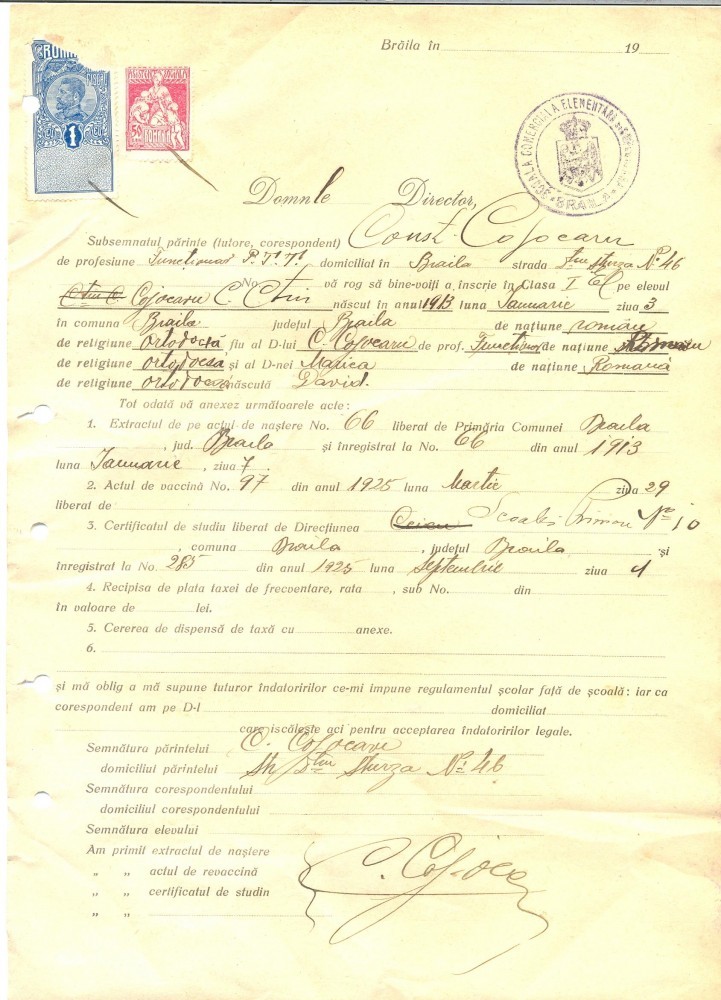 Brăila în 19
ROMÂ
FISCAL
1
50
ROMANIA
ȘCOALA COMERCIALĂ ELEMENTARĂ
BRAILA
Domnle Director,
Subsemnatul părinte (tutore, corespondent) Const. Cojocaru
de profesiune Funcționar P.T.T. domiciliat în Braila strada Sturza No 46
No vă rog să bine-voiți a înscrie în Clasa I El pe elevul
Cojocaru C. Ctin născut în anul 1913 luna Ianuarie ziua 3
în comuna Braila județul Braila de națiune român
de religiune ortodocsă fiu al D-lui C. Cojocaru de prof. Funcționar de națiune
de religiune ortodocsă și al D-nei Marica de națiune Romană
de religiune ortodocsă născută David.
Tot odată vă anexez următoarele acte:
1. Extractul de pe actul de naștere No. 66 liberat de Primăria Comunei Braila
, jud. Braila și înregistrat la No. 66 din anul 1913
luna Ianuarie, ziua 7.
2. Actul de vaccină No. 97 din anul 1925 luna Martie ziua 29
liberat de
3. Certificatul de studiu liberat de Direcțiunea Scoalei Primare No 10
, comuna Braila, județul Braila și
înregistrat la No. 285 din anul 1925 luna Septembrie ziua 4
4. Recipisa de plata taxei de frecventare, rata , sub No. din
în valoare de lei.
5. Cererea de dispensă de taxă cu anexe.
6.
și mă oblig a mă supune tuturor îndatoririlor ce-mi impune regulamentul școlar față de școală: iar ca
corespondent am pe D-l domiciliat
care iscălește aci pentru acceptarea îndatoririlor legale.
Semnătura părintelui C. Cojocaru
domiciliul părintelui Sturza No 46
Semnătura corespondentului
domiciliul corespondentului
Semnătura elevului
Am primit extractul de naștere
„ „ actul de revaccină
„ „ certificatul de studin
„ „
C. Cojoca